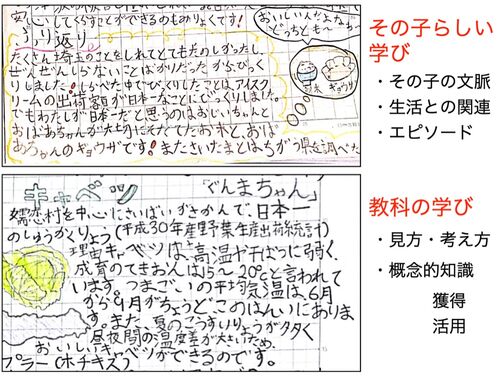 安心してくらすことができるのものりょくです!
ふり返り
たくさん埼玉のことをしれてとてもたのしかったし、
ぜんぜんしらないことばかりだったからびっく
りしました!しらべた中でびっくりしたことはアイスク
リームの出荷額が日本一なことにびっくりしました。
でもわたしが日本一だと思うのはおじいちゃんと
おばあちゃんが大切にそだてたお米と、おば
あちゃんのギョウザです!またさいたまとはちがう県を調べた
おいしいんだよなぁ〜
どっちとも〜〜
お米 ギョウザ
その子らしい
学び
・その子の文脈
・生活との関連
・エピソード
キャベツ
「ぐんまちゃん」
嬬恋村を中心にさいばいがさかんで、日本一
のしゅうかくりょう(平成30年産野菜生産出荷統計)
理由キャベツは高温やかんばつに弱く、
成育のてきおんは15〜20℃と言われて
います。つまごいの平均気温は、6月
から9月がちょうど、このはんいにありま
す。また、夏のこうすいりょうが多く
昼夜間の温度差が大きいため、
おいしいキャベツができるのです。
プラー(ホチキス)
教科の学び
・見方・考え方
・概念的知識
獲得
活用